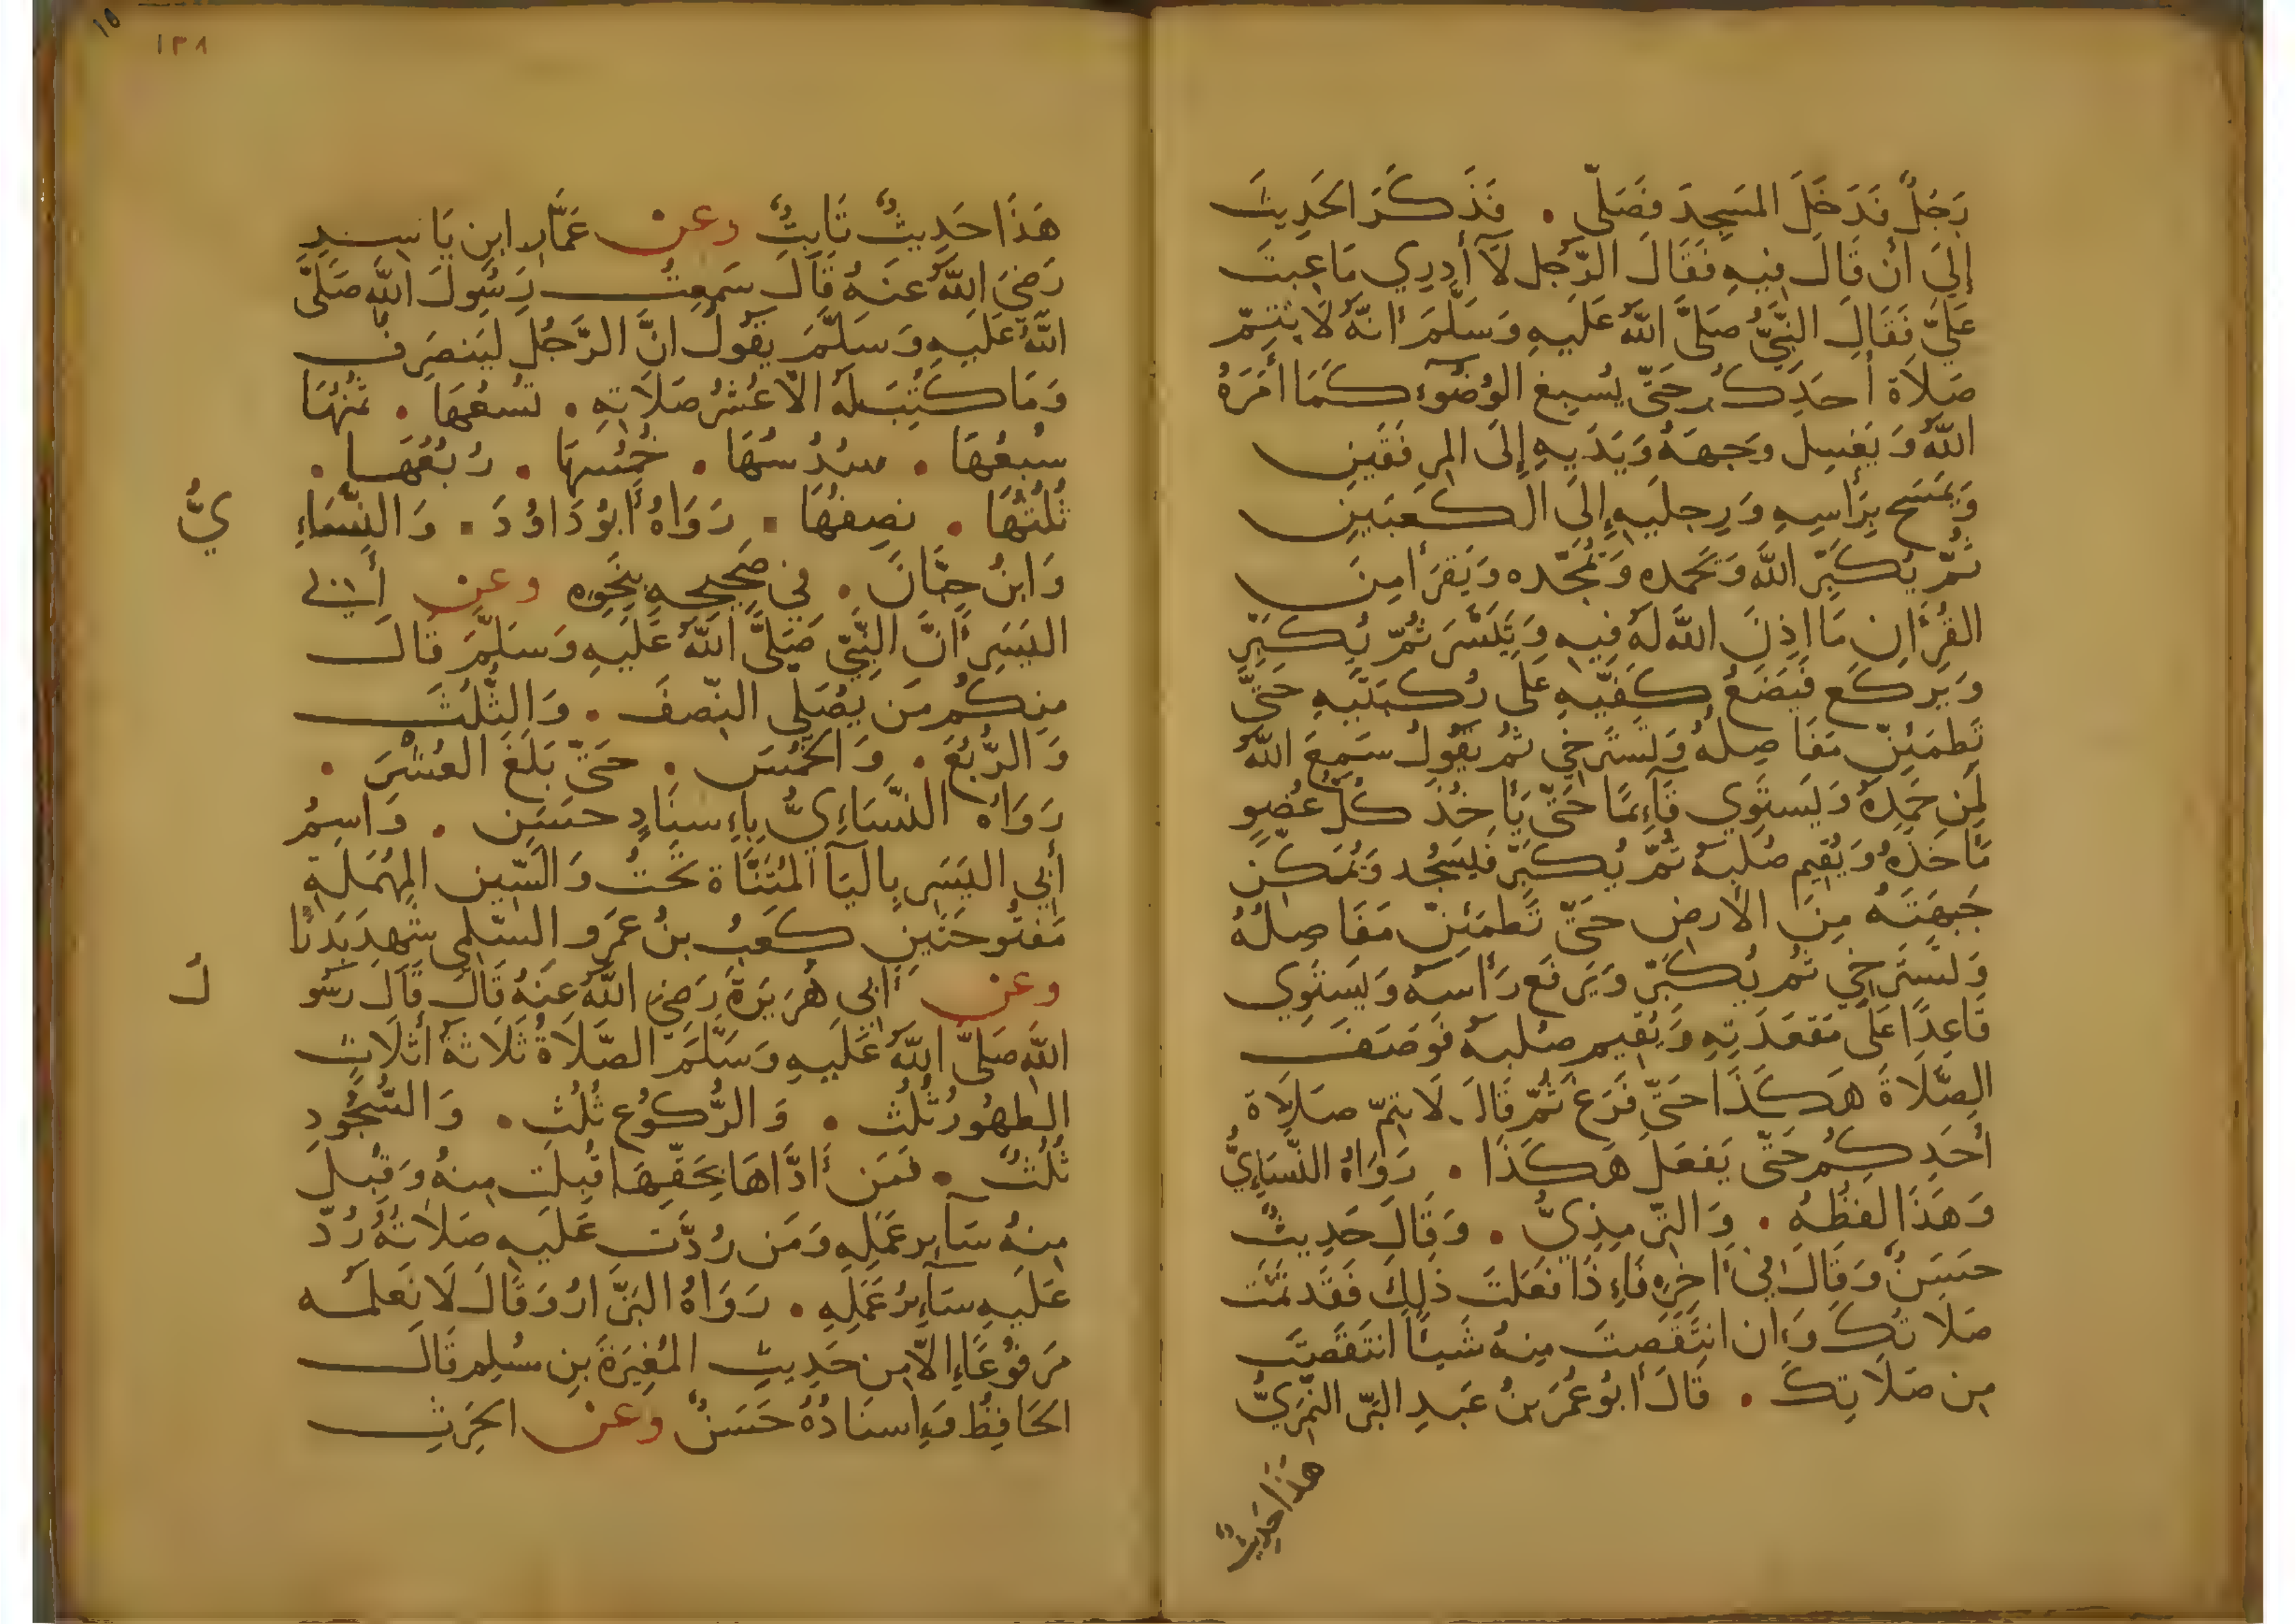 رَجُلٌ فَدَخَلَ المَسجِدَ فَصَلّى . فَذَكَرَ الحَدِيثَ
إِلَى أَن قَالَ فِيهِ فَقَالَ الرَّجُل لَا أَدرِي مَا عِبتَ
عَلَيَّ فَقَالَ النَّبِيُّ صَلَّى اللَّهُ عَلَيهِ وَسَلَّمَ انَّهُ لَا تَتِمّ
صَلَاة أَحَدِكُم حَتّى يُسبِغ الوُضُوء كَمَا أَمَرَهُ
اللَّهُ وَيَغسِل وَجهَهُ وَيَدَيهِ إِلَى المِرفَقَينِ
وَيَمسَح بِرَأسِهِ وَرِجلَيهِ إِلَى الكَعبَينِ
ثُمّ يُكَبِّر اللَّهَ وَيَحمَده وَيُمَجِّده وَيَقرَأ مِنَ
القُرأَانِ مَا اذِنَ اللَّه لَهُ فِيهِ وَتَيَسَّرَ ثُمّ يُكَبِّر
وَيَركَع فَيَضَعُ كَفَّيهِ عَلَى رُكبَتَيهِ حَتَّى
تَطمَئِنّ مَفَاصِلُهُ وَتَستَرخِي ثُمّ يَقُولُ سَمِعَ اللَّهُ
لِمَن حَمِدَهُ وَيَستَوِي قَآئِمًا حَتَّى يَأخُذَ كُلّ عُضوٍ
مَأخَذَهُ وَيُقِيم صُلبَهُ ثُمَّ يُكَبِّر فَيَسجُد وَيُمَكِّن
جَبهَتَهُ مِنَ الأَرضِ حَتَّى تَطمَئِنّ مَفَاصِلُهُ
وَتَستَرخِي ثُمّ يُكَبِّر وَيَرفَع رَأسَهُ وَيَستَوِي
قَاعِدًا عَلَى مَقعَدَتِهِ وَيُقِيم صُلبَهُ فَوَصَفَ
الصَّلَاةَ هَكَذَا حَتَّى فَرَغ ثُمّ قَالَ لَا تَتِمّ صَلَاة
أَحَدِكُم حَتّى يَفعَل هَكَذَا . رَوَاهُ النَّسَائِيُّ
وَهَذَا لَفظُهُ . وَالتِّرمِذِيُّ . وَقَالَ حَدِيثٌ
حَسَنٌ وَقَالَ فِي أَاخِرِهِ فَإِذَا فَعَلتَ ذَلِكَ فَقَد تَمَّت
صَلَاتُكَ وَان انتَقَصتَ مِنهُ شَيئًا انتَقَصتَ
مِن صَلَاتِكَ . قَالَ أَبُو عُمَرَ بنُ عَبدِ البَرِّ النَّمَرِيُّ
هَذَا حَدِيثٌ
١٥
١٢٨
هَذَا حَدِيثٌ ثَابِتٌ وعن عَمَّارِ ابنِ يَاسِرٍ
رَضِيَ اللَّهُ عَنهُ قَالَ سَمِعتُ رَسُولَ اللَّهِ صَلَّى
اللَّهُ عَلَيهِ وَسَلَّمَ يَقُولُ انَّ الرَّجُلَ لَيَنصَرِفُ
وَمَا كُتِبَ لَهُ الَّا عُشرُ صَلَاتِهِ . تُسعُهَا . ثُمُنُهَا
سُبعُهَا . سُدُسُهَا . خُمُسُهَا . رُبُعُهَا .
ثُلُثُهَا . نِصفُهَا . رَوَاهُ أَبُو دَاوُدَ . وَالنَّسَاءِ
يُّ
وَابنُ حِبَّانَ . فِي صَحِيحِهِ بِنَحوِهِ وعن أَبِي
اليَسَرِ أَنَّ النَّبِيّ صَلَّى اللَّهُ عَلَيهِ وَسَلَّمَ قَالَ
مِنكُم مَن يُصَلِّي النِّصفَ . وَالثُّلُثَ
وَالرُّبُعَ . وَالخُمُسَ . حَتّى بَلَغَ العُشْرَ .
رَوَاهُ النَّسَاءِيُّ بِإِسنَادٍ حَسَنٍ . وَاسمُ
أَبِي اليَسَرِ بِاليَآ المُثَنَّاة تَحتُ وَالسِّينِ المُهمَلَةِ
مَفتُوحَتَينِ كَعبُ بنُ عَمرٍو السّلمِى شَهِدَ بَدرًا
وعن أَبِي هُرَيرَةَ رَضِيَ اللَّهُ عَنهُ قَالَ قَالَ رَسُو
لُ
اللَّهِ صَلَّى اللَّهُ عَلَيهِ وَسَلَّمَ الصَّلَاةُ ثَلَاثَةُ أَثلَاثٍ
الطهُورُ ثُلُثٌ . وَالرُّكُوعُ ثُلُثٌ . وَالسُّجُودِ
ثُلُثٌ . فَمَن أَدَّاهَا بِحَقِّهَا قُبِلَت مِنهُ وَقُبِلَ
مِنهُ سَآئِر عَمَلِهِ وَمَن رُدَّت عَلَيهِ صَلَاتُهُ رُدّ
عَلَيهِ سَآئِرُ عَمَلِهِ . رَوَاهُ البَزَّارُ وَقَالَ لَا نَعلَمُه
مَرفُوعًا إِلَّا مِن حَدِيثِ المُغِيرَةَ بنِ مُسلِم قَالَ
الحَافِظُ وَإِسنَادُهُ حَسَنٌ وعن الحَرِثِ